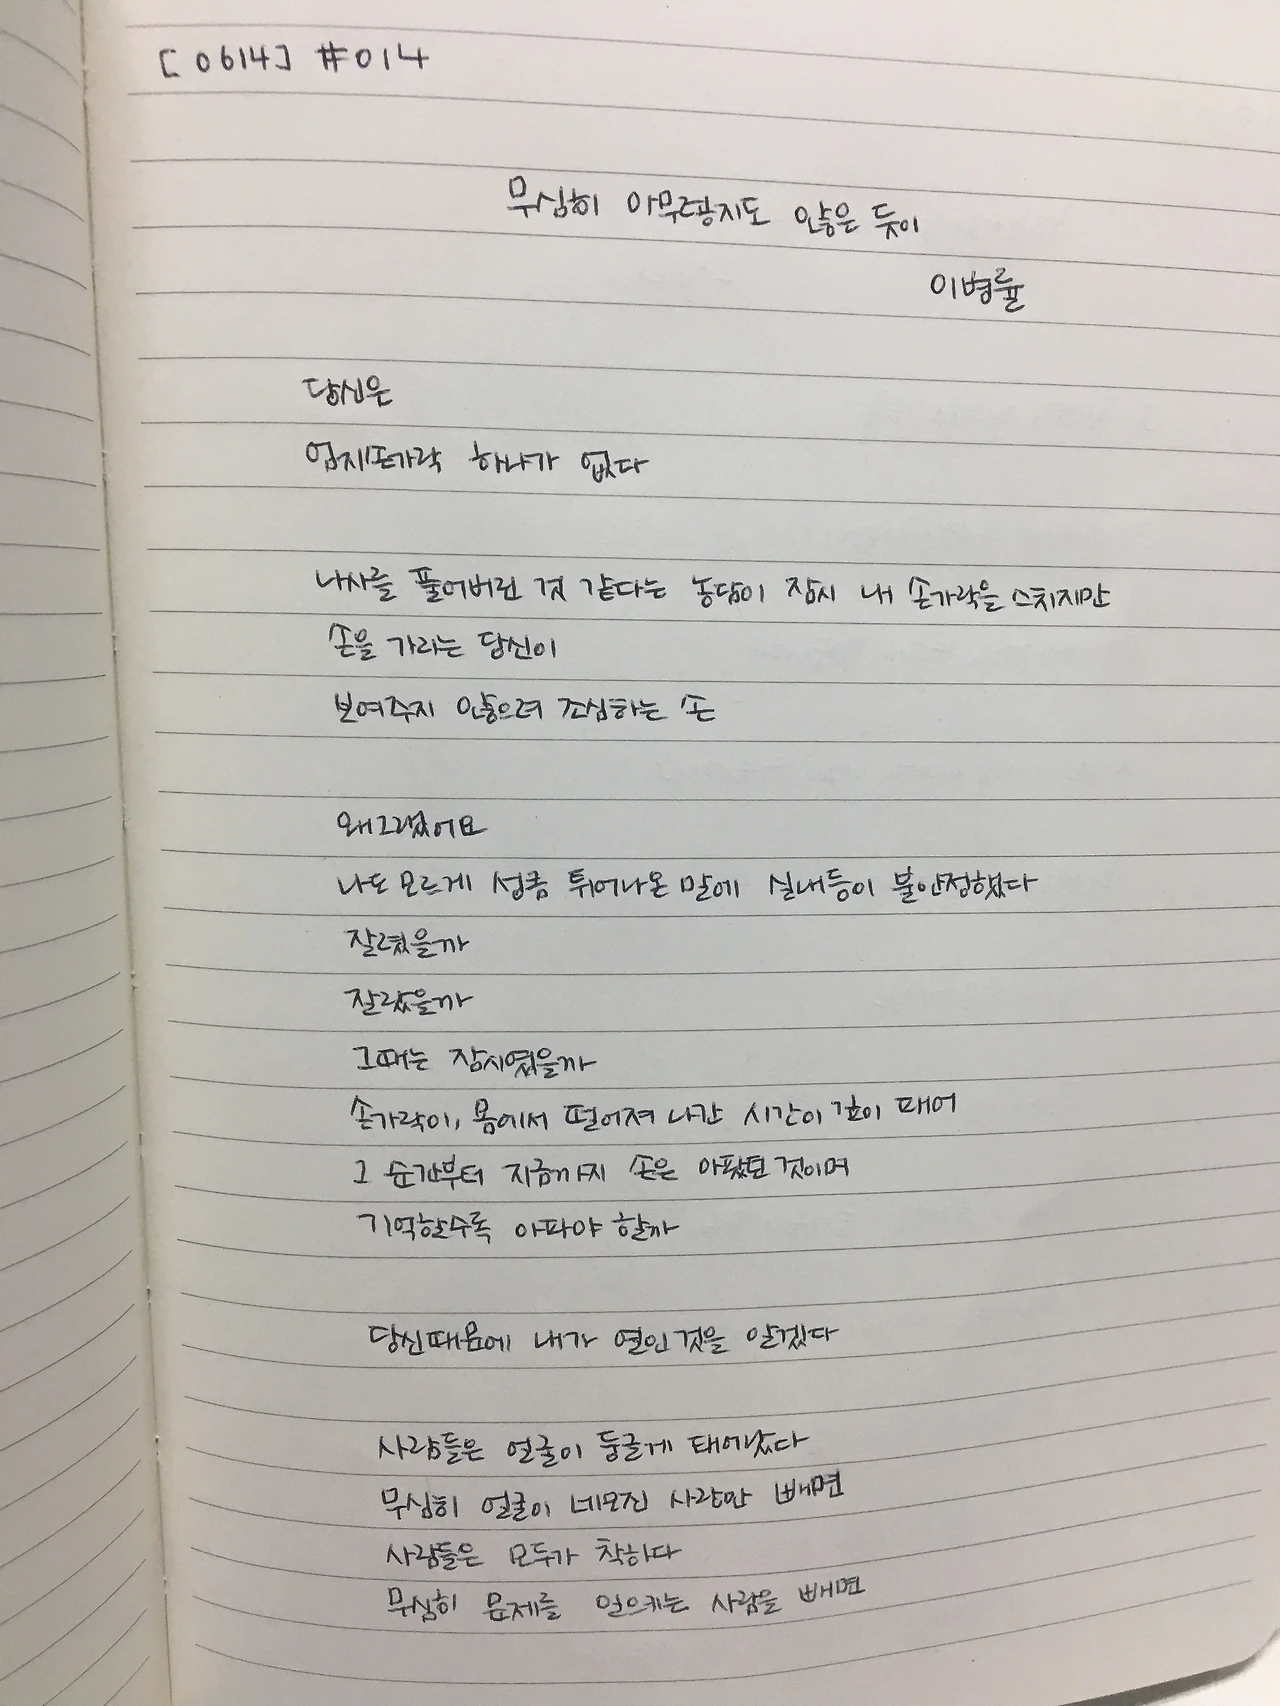 [0614] #014
무심히 아무렇지도 않은 듯이
이병률
당신은
엄지손가락 하나가 없다
나사를 풀어버린 것 같다는 농담이 잠시 내 손가락을 스치지만
손을 가리는 당신이
보여주지 않으려 조심하는 손
왜그랬어요
나도 모르게 성큼 튀어나온 말에 실내등이 불안정했다
잘렸을까
잘랐을까
그때는 잠시였을까
손가락이, 몸에서 떨어져 나간 시간이 깊이 패어
그 순간부터 지금까지 손은 아팠던 것이며
기억할수록 아파야 할까
당신때문에 내가 열인 것을 알겠다
사람들은 얼굴이 둥글게 태어났다
무심히 얼굴이 네모진 사람만 빼면
사람들은 모두가 착하다
무심히 문제를 일으키는 사람을 빼면